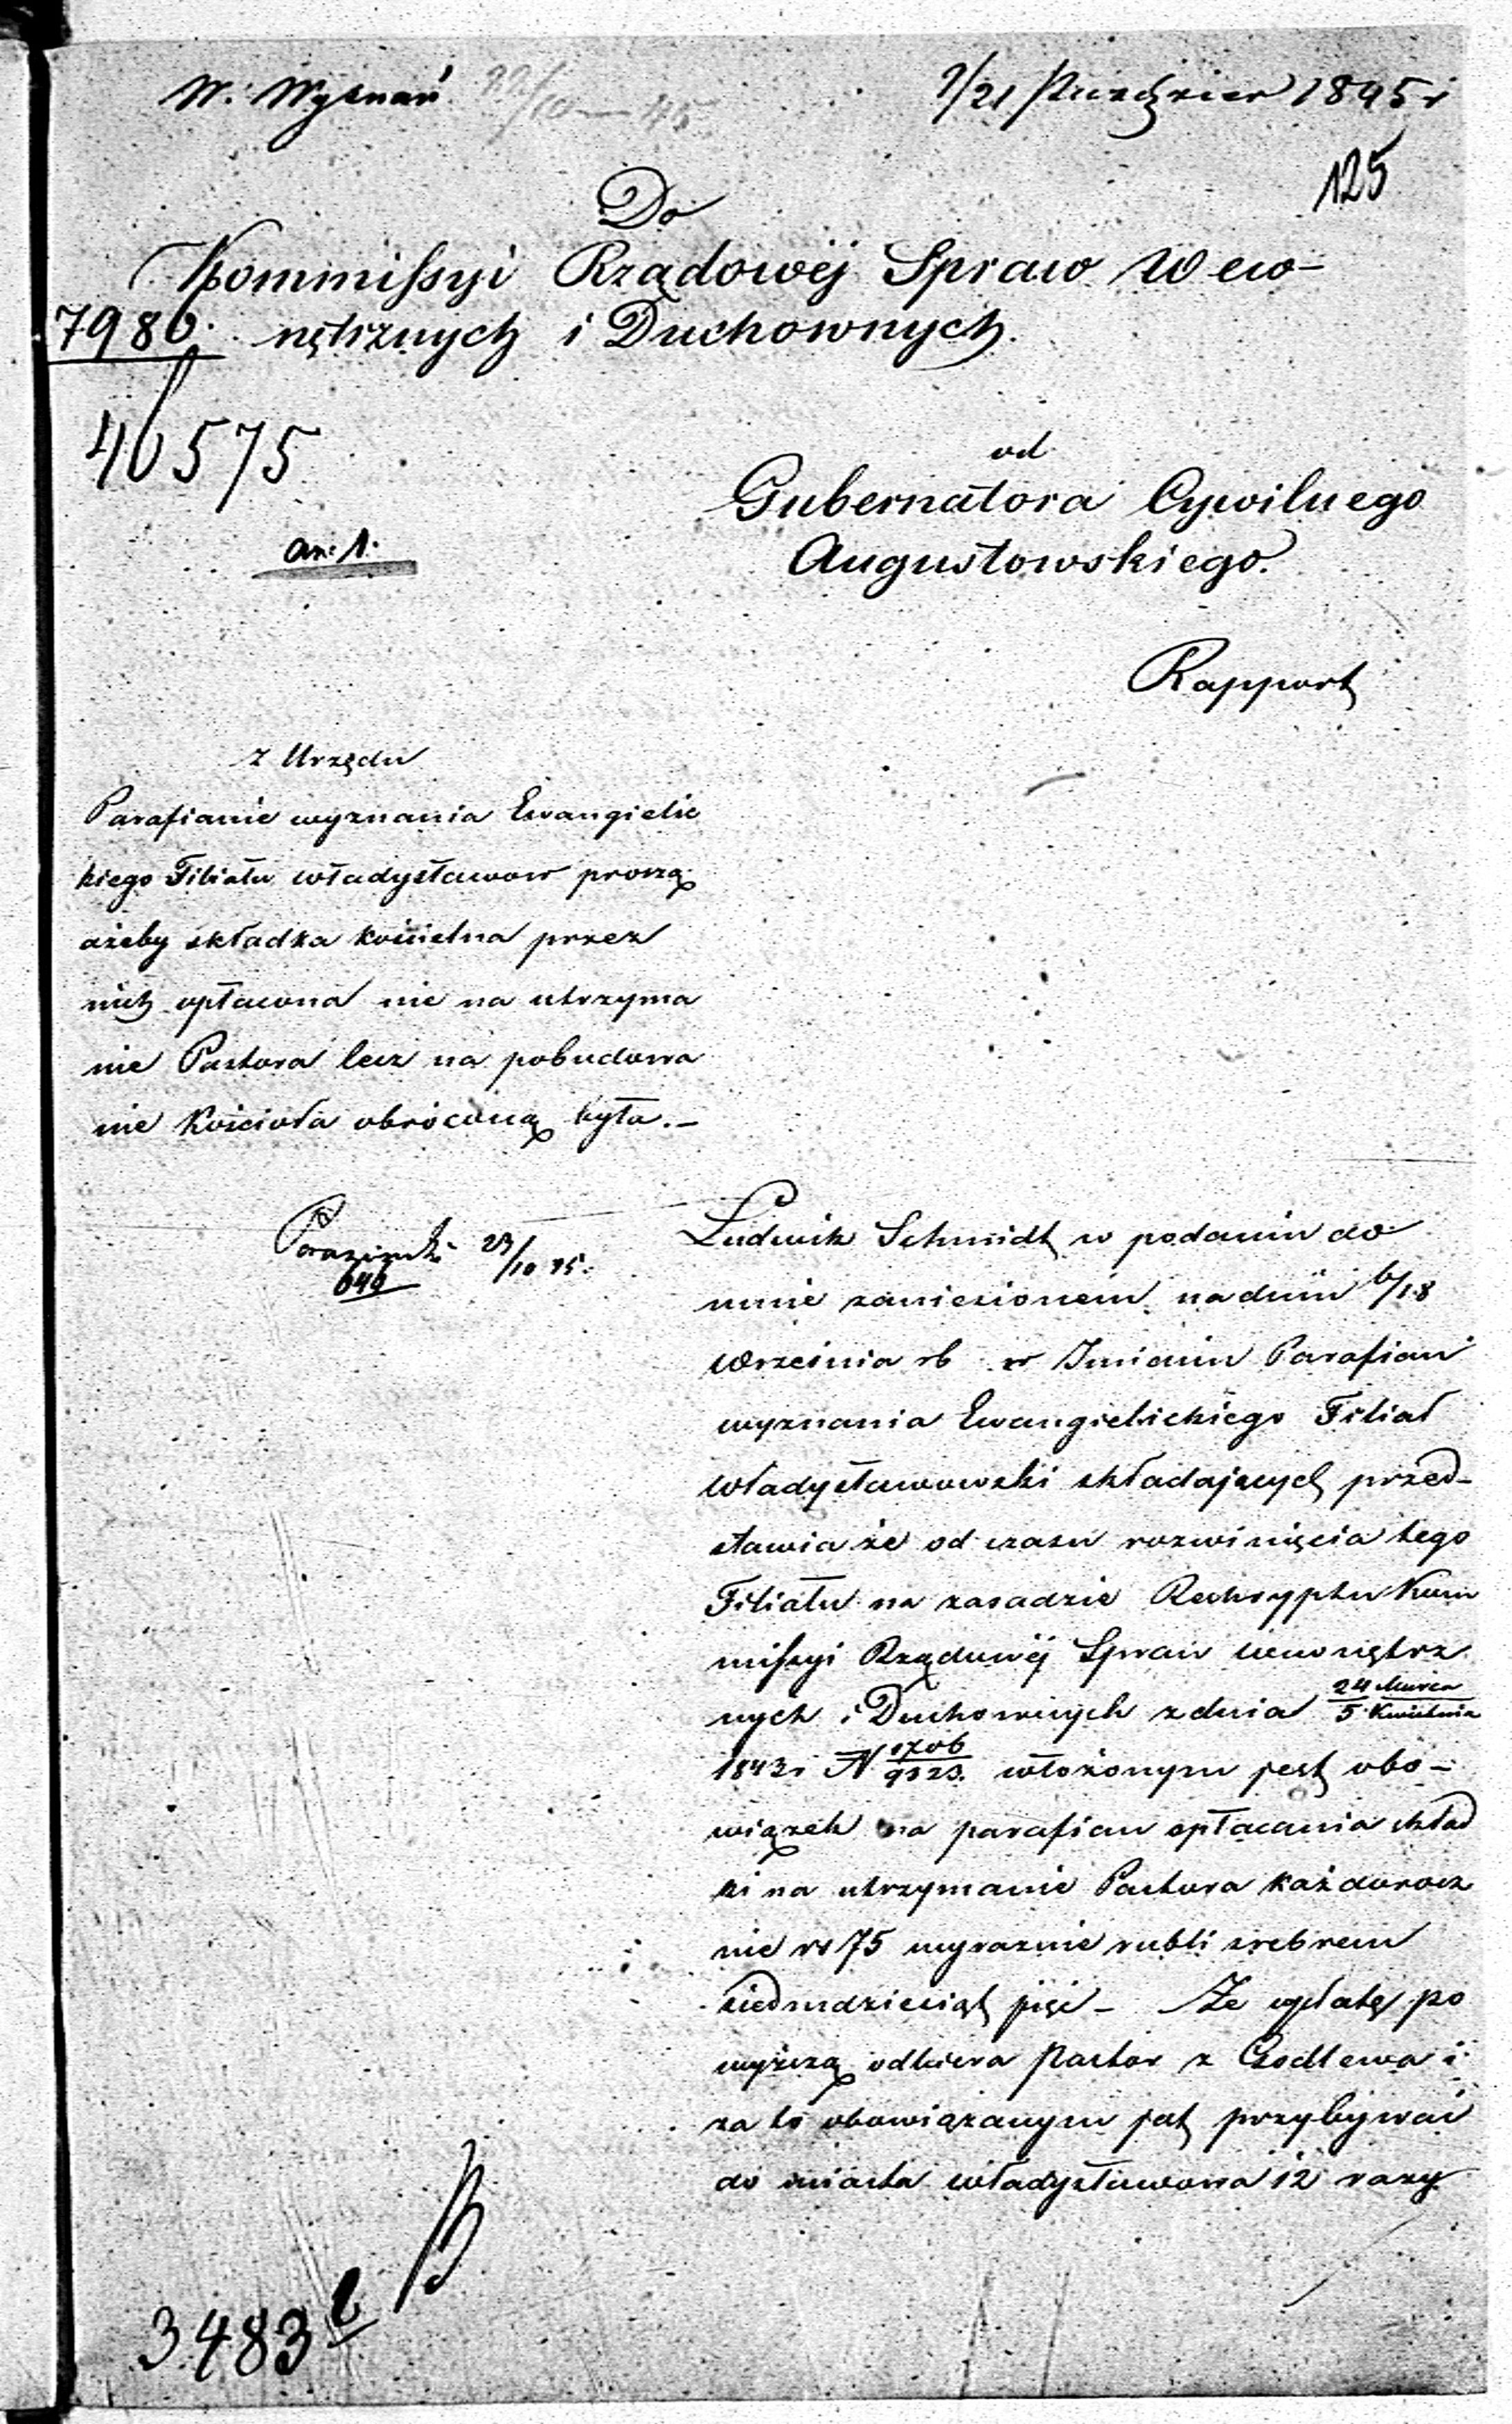 W. Wyznań 22/10 – 45
9/21 Paździer 1845 r
125
Do
Kommissyi Rządowéj Spraw Wew-
7980. nętrznych i Duchownych.
46575
an: 1.
od
Gubernatora Cywilnego
Augustowskiego.
Rapport
z Urzędu
Parafianie wyznania Ewangielic
kiego Filiału Władysławow proszą
ażeby składka kościelna przez
nich opłacona nie na utrzyma
nie Pastora lecz na pobudowa
nie Kościoła obróconą była.-
23/10 45.
640
Ludwik Schmidt w podaniu do
mnie zaniesionem na dniu 6/18
Września rb w Imieniu Parafian
wyznania Ewangielickiego Filiał
Władysławowski składających przed-
stawia że od czasu rozwinięcia tego
Filiału na zasadzie Reskryptu Kom
missyi Rządowéj Spraw Wewnętrz
nych i Duchownych z dnia 24 Marca / 5 Kwietnia
1843 r N 9323. włożonym jest obo-
wiązek na parafian opłacania skład
ki na utrzymanie Pastora każdorocz
nie rs 75 wyraźnie rubli srebrem
siedmdziesiąt pięć - Że opłatę po
wyższą odbiera Pastor z Godlewa i
za to obowiązanym jest przybywać
do miasta Władysławowa 12 razy
3483 l